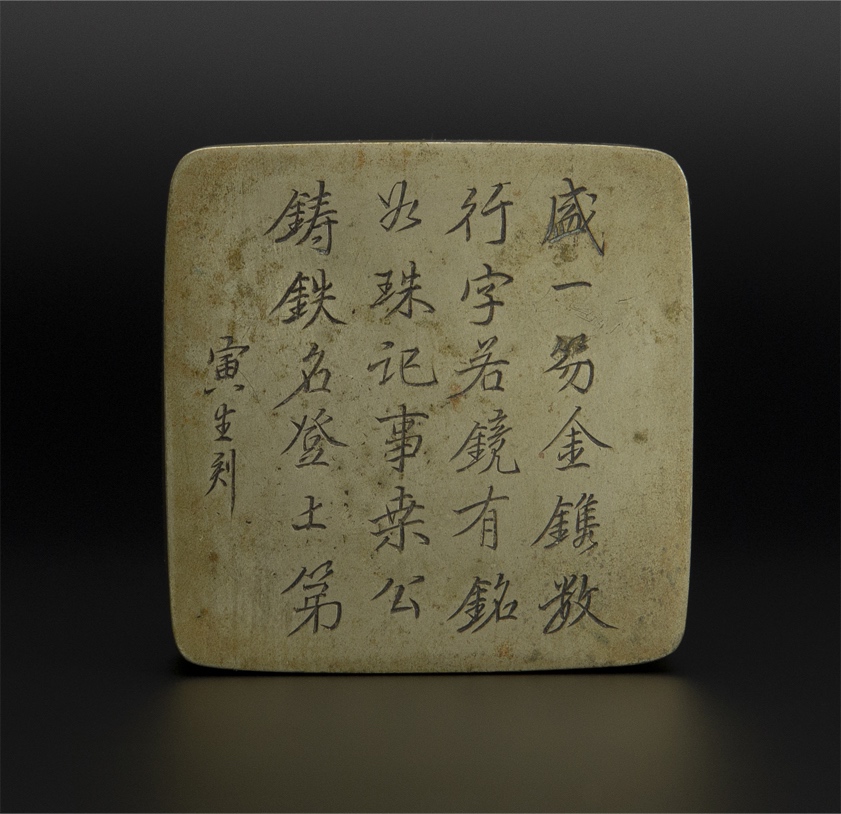 盛一笏金鐫數
行字若鏡有銘
如珠記事桒公
鋳鉄名登上第
寅生刻